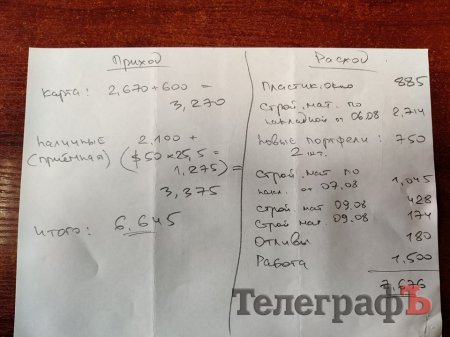 Приход
карта: 2,670 + 600 =
3,270
наличные 2,100 +
(приёмная) ($50 x 25,5 =
1,275) =
3,375
итого: 6,645
Расход
Пластик. окно 885
Строй. мат. по
накладной от 06.08 2,714
новые портфели: 750
2 шт.
Строй. мат по
накл. от 07.08 1,045
строй. мат 09.08 428
Строй мат. 09.08 174
Отливы 180
Работа 1,500
7,676
ТелеграфЪ